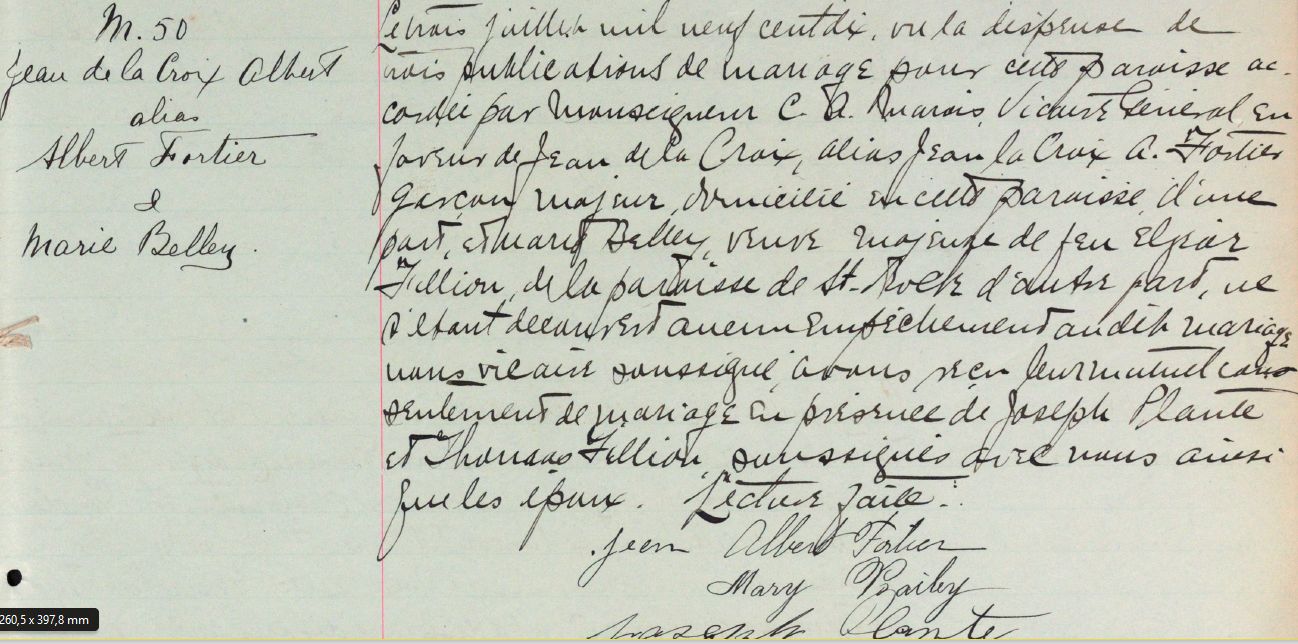 M. 50
Jean de la Croix Albert
alias
Albert Fortier
&
Marie Belley.
Le trois juillet mil neuf cent dix, vu la dispense de
trois publications de mariage pour cette paroisse ac-
cordée par Monseigneur C. A. Marois, Vicaire Général, en
faveur de Jean de la Croix, alias Jean la Croix A. Fortier
garçon majeur, domicilié en cette paroisse, d'une
part, et Marie Belley, veuve majeure de feu Elzéar
Fillion, de la paroisse de St-Roch d'autre part, ne
s'étant découvert aucun empêchement au dit mariage
nous vicaire soussigné, avons reçu leur mutuel con-
sentement de mariage en présence de Joseph Plante
et Thomas Fillion, soussignés avec nous ainsi
que les époux. Lecture faite.
Jean Albert Fortier
Mary Bailey
Joseph Plante
260,5 x 397,8 mm